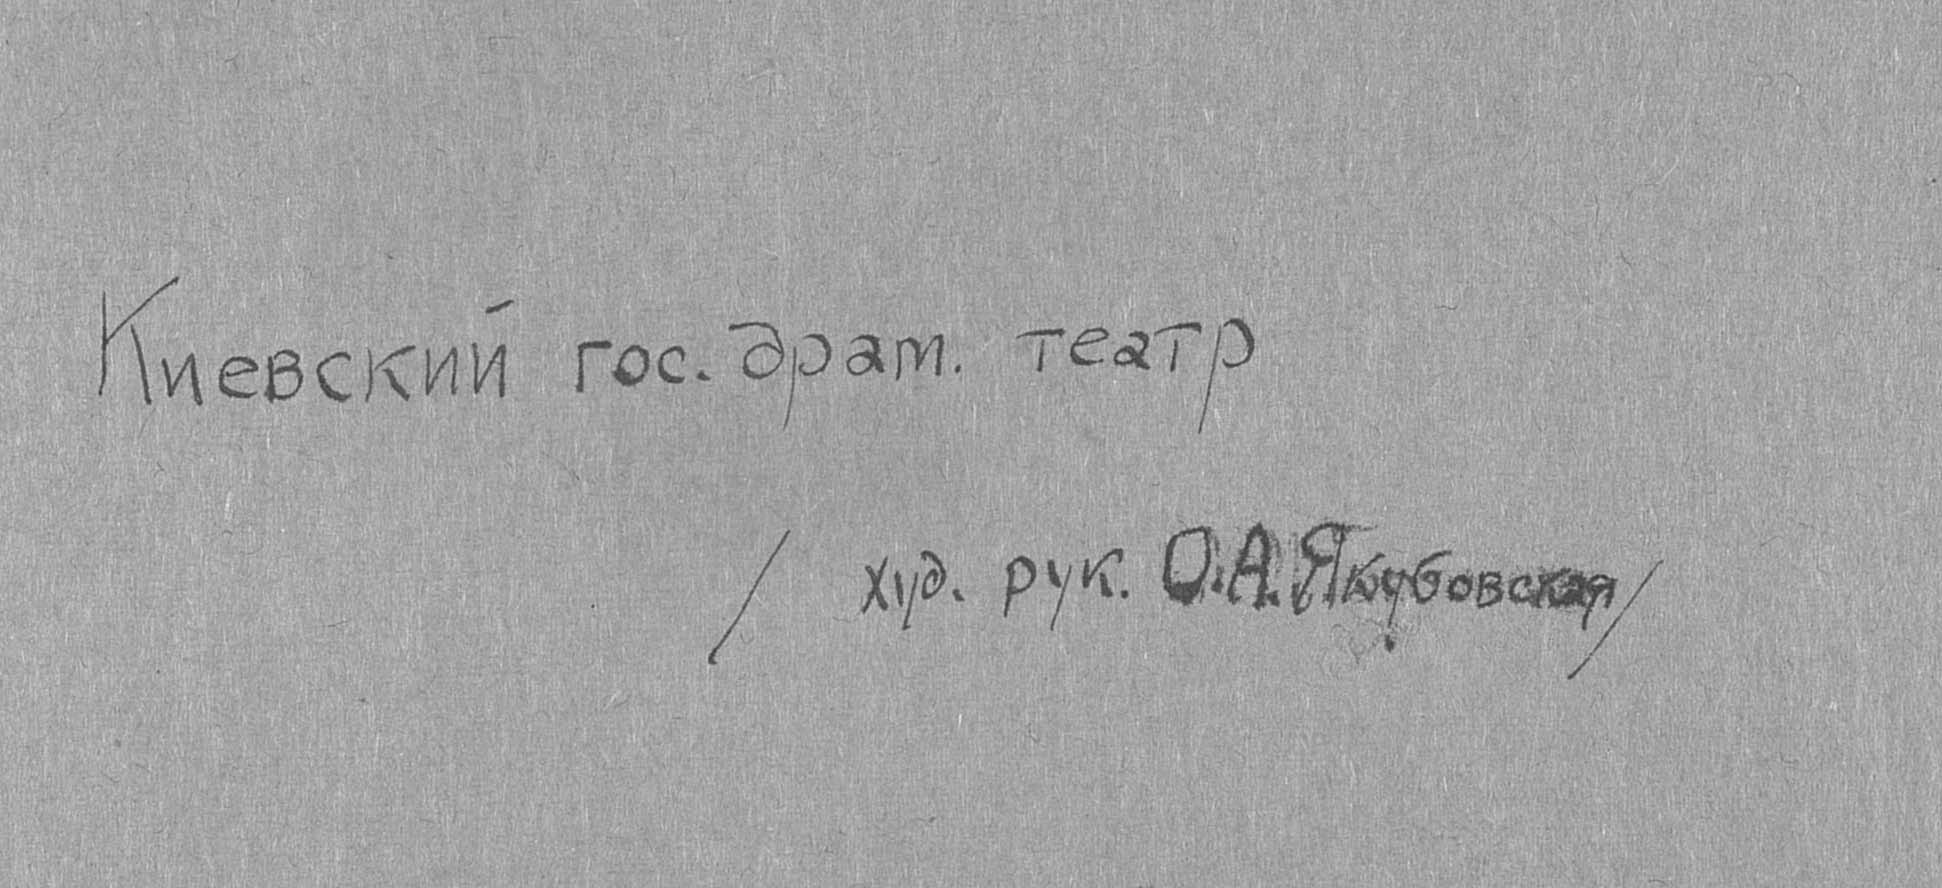 Киевский гос. драт. театр
/ худ. рук. О.А. Якубовская/